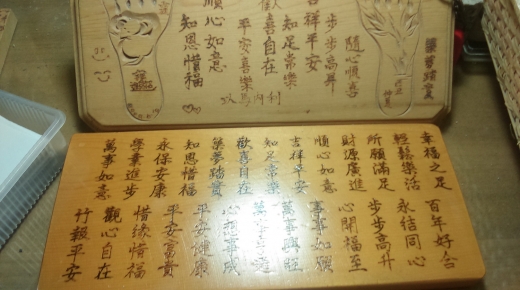 築夢踏實
隨心順喜
步步高昇
吉祥平安
知足常樂
歡喜自在
平安喜樂
順心如意
知恩惜福
以馬內利
幸福之足 百年好合
輕鬆樂活 永結同心
所願滿足 步步高升
財源廣進 心開福至
順心如意 事如願
吉祥平安 萬事興旺
知足常樂 萬事
歡喜自在 心想事成
築夢踏實 平安健康
知恩惜福 平安富貴
永保安康 惜緣惜福
專業進步 觀心自在
萬事如意 竹報平安